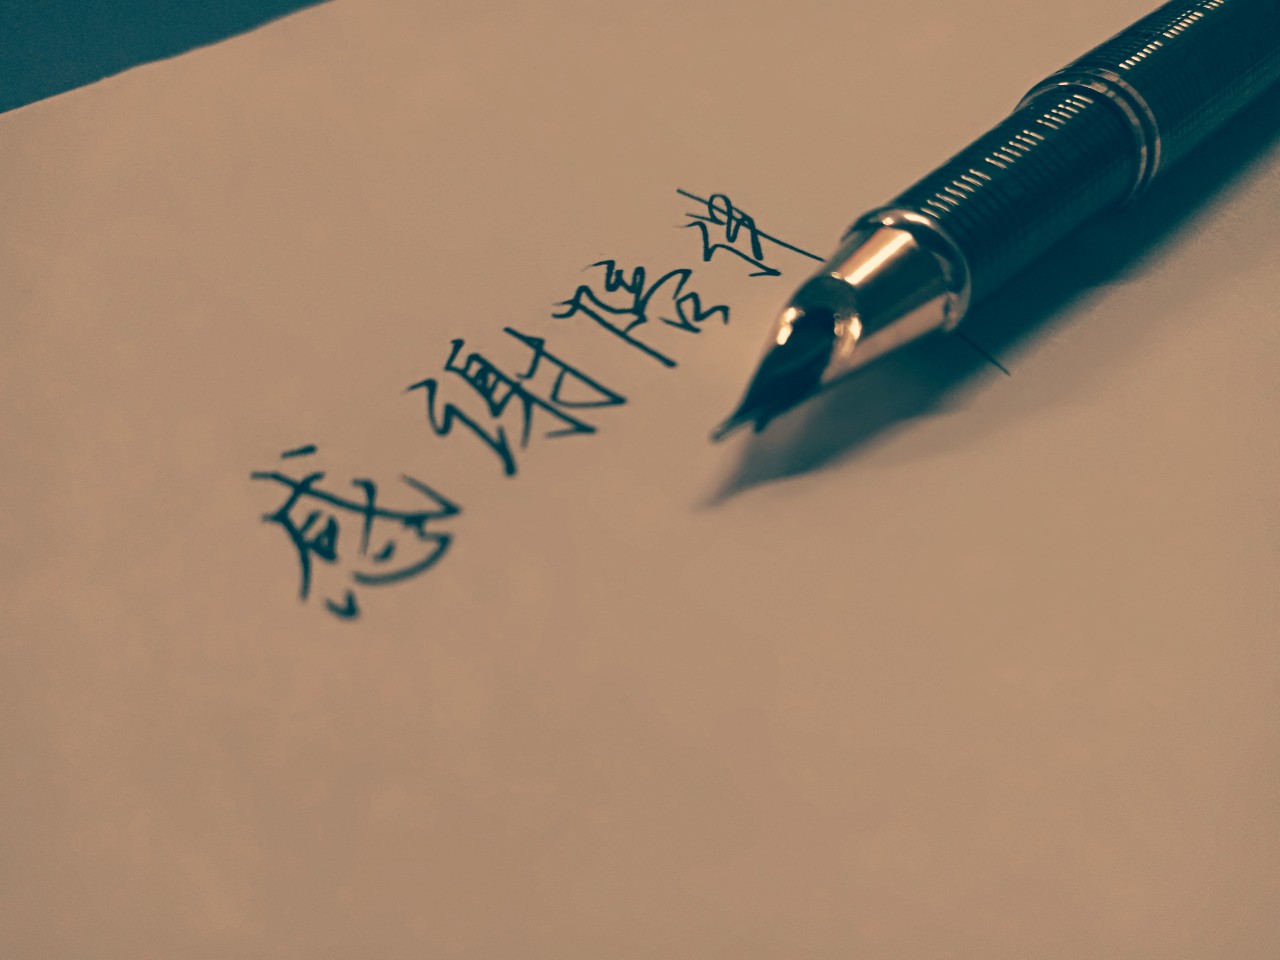 感谢陪伴